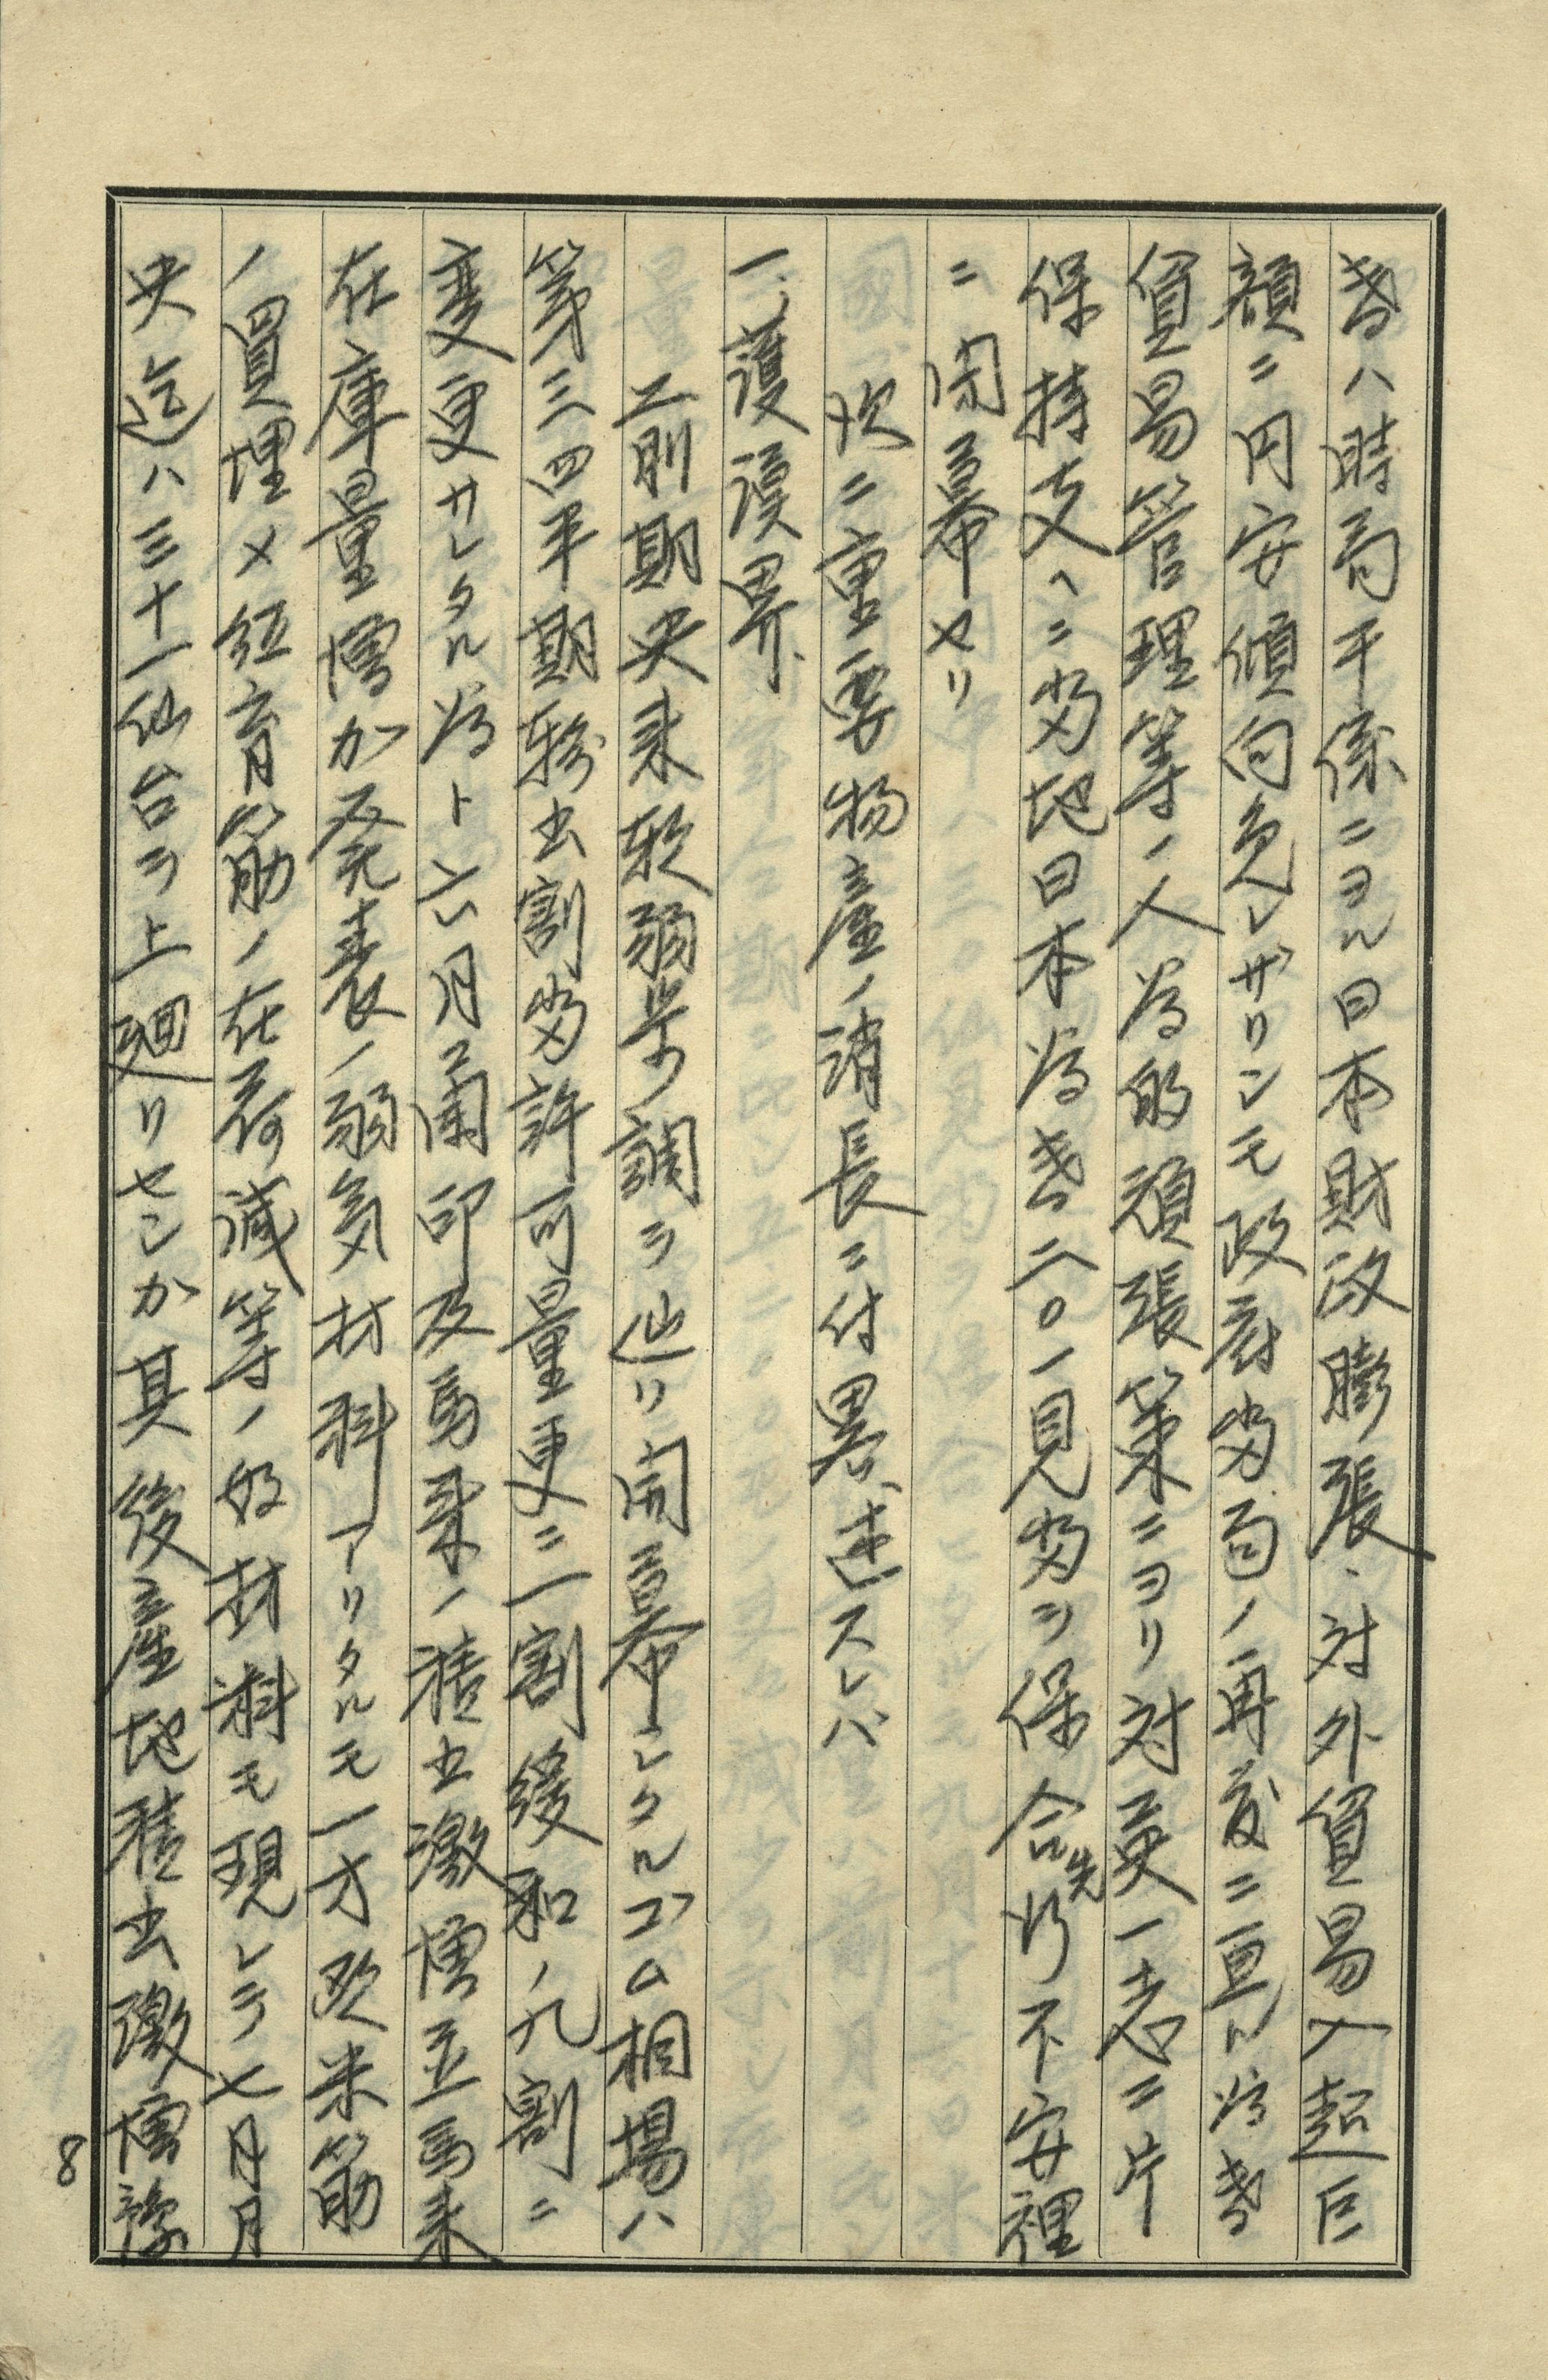 替ハ時局干係ニヨル日本財政膨張、対外貿易入超巨
額ニ円安傾向免レザリシモ政府当局ノ再度ニ亘ル為替
貿易管理等ノ人為的頑張策ニヨリ対英一志二片
保持支ヘニ当地日本為替二〇一見当ヲ保合先行不安裡
ニ閉幕セリ
次ニ重要物産ノ消長ニ付略述スレバ
一、護謨界、
前期央来軟弱歩調ヲ辿リ開幕シタルゴム相場ハ
第三四半期輸出割当許可量更ニ一割緩和ノ九割ニ
変更サレタル為ト六月蘭印及馬来ノ積出激増並馬来
在庫量増加発表ノ弱気材料アリタルモ一方欧米筋
ノ買埋メ紐育筋ノ在荷減等ノ好材料モ現レテ七月月
央迄ハ三十一仙台ヲ上廻リセシカ其後産地積出激増予
8